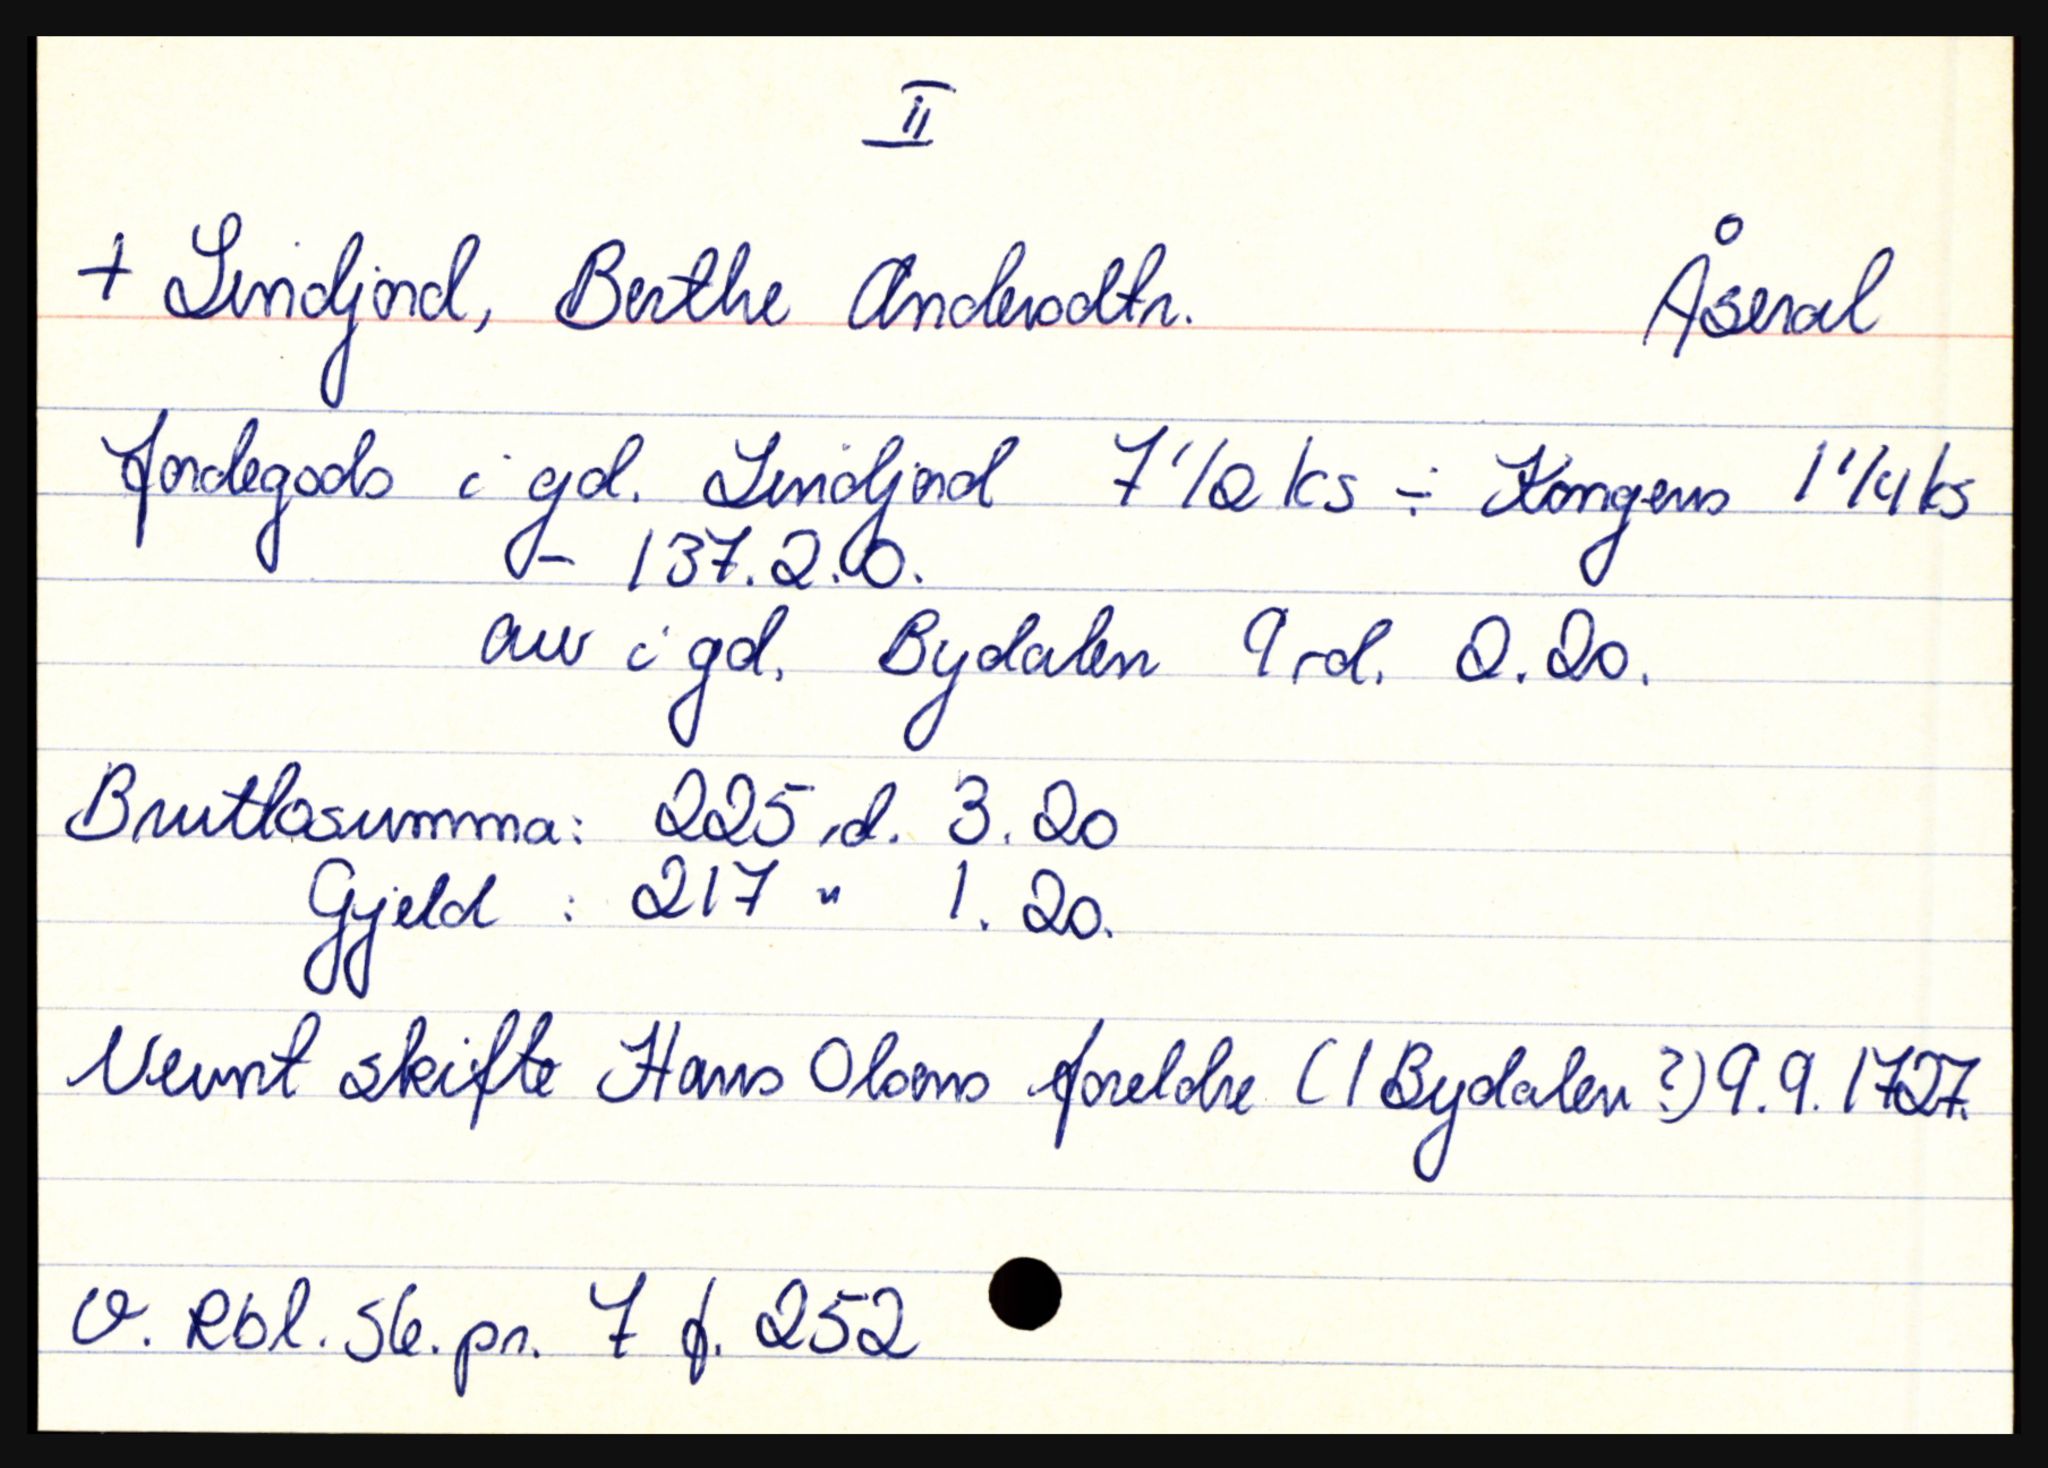 II
+ Lindjord, Berthe Andersdtr. Åseral
Jordegods i gd. Lindjord 7 1/2 ks ÷ Kongens 1 1/4 ks
- 137.2.0.
arv i gd. Bydalen 9 rd. 2.20.
Bruttosumma: 225 rd. 3.20
Gjeld : 217 " 1.20.
Nevnt skifte Hans Olsens foreldre (I Bydalen?) 9.9.1727.
V. Rbl. sk. pr. 7 f. 252